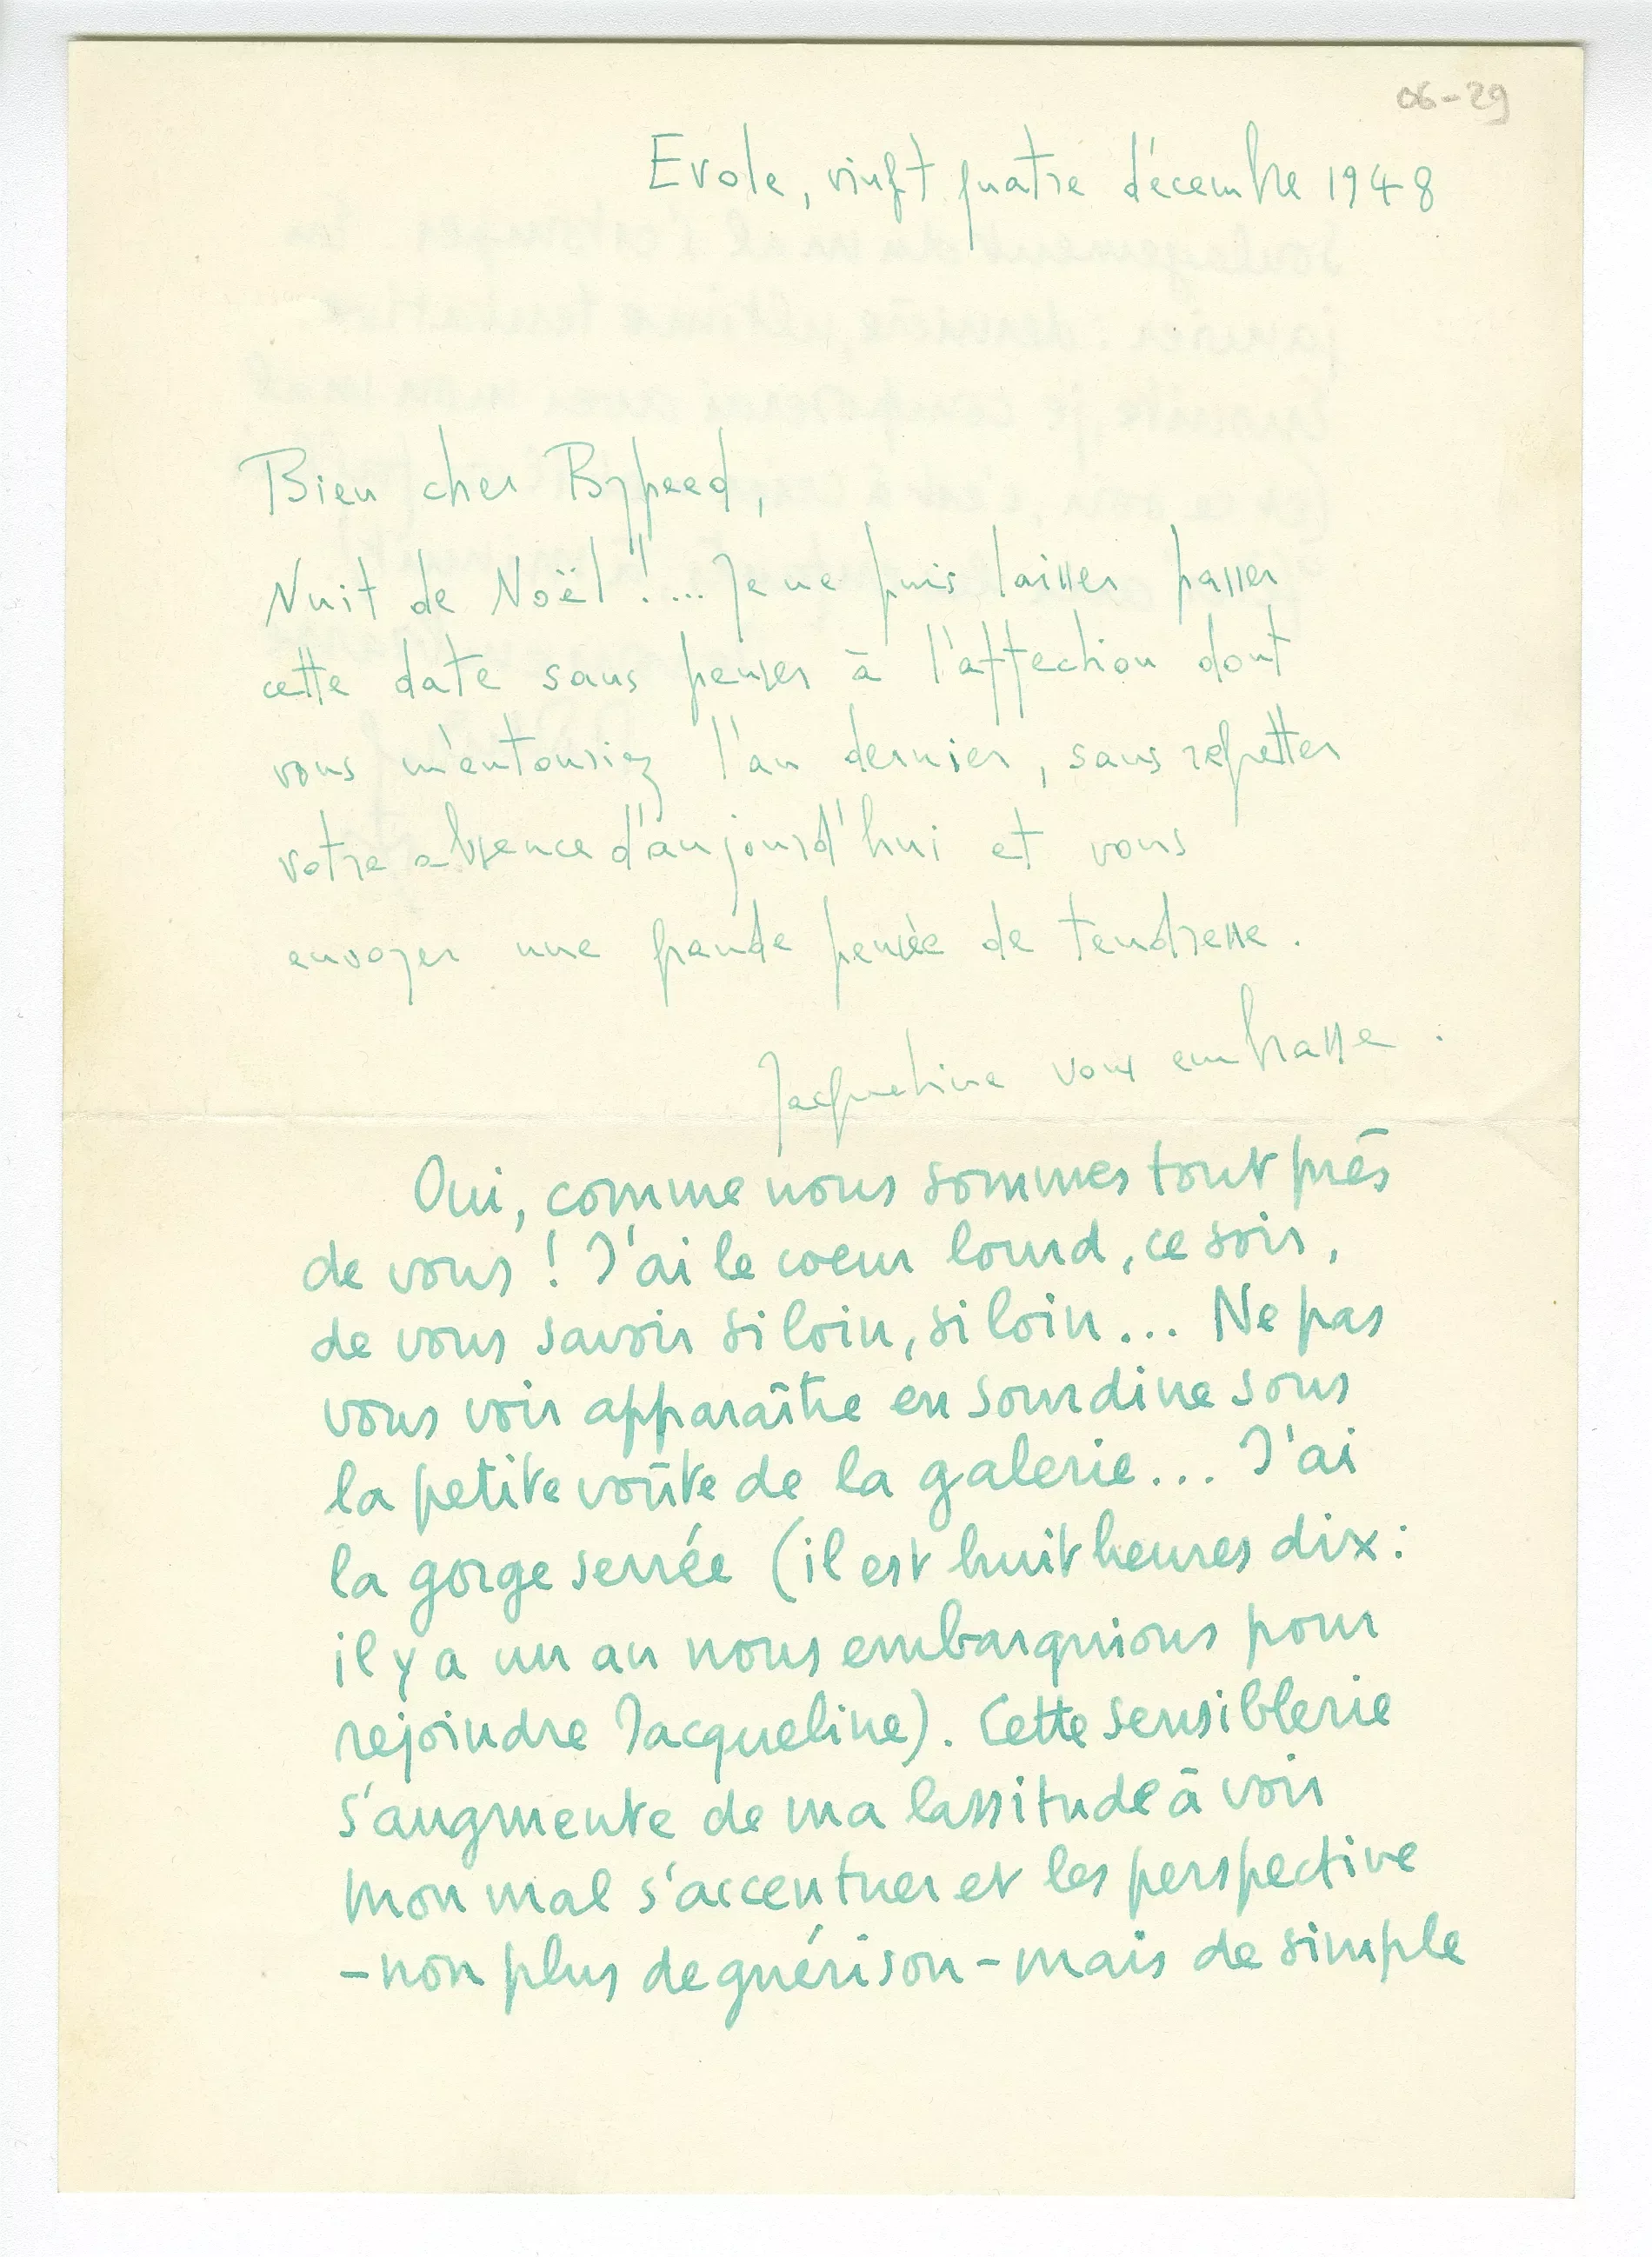 06-29
Evole, vingt quatre décembre 1948
Bien cher Bypeed,
Nuit de Noël !... Je ne puis laisser passer
cette date sans penser à l'affection dont
vous m'entouriez l'an dernier, sans regretter
votre absence d'aujourd'hui et vous
envoyer une grande pensée de tendresse.
Jacqueline vous embrasse.
Oui, comme nous sommes tout près
de vous ! J'ai le coeur lourd, ce soir,
de vous savoir si loin, si loin... Ne pas
vous voir apparaître en sourdine sous
la petite voûte de la galerie... J'ai
la gorge serrée (il est huit heures dix :
il y a un an nous embarquions pour
rejoindre Jacqueline). Cette sensiblerie
s'augmente de ma lassitude à voir
mon mal s'accentuer et les perspective
- non plus de guérison - mais de simple